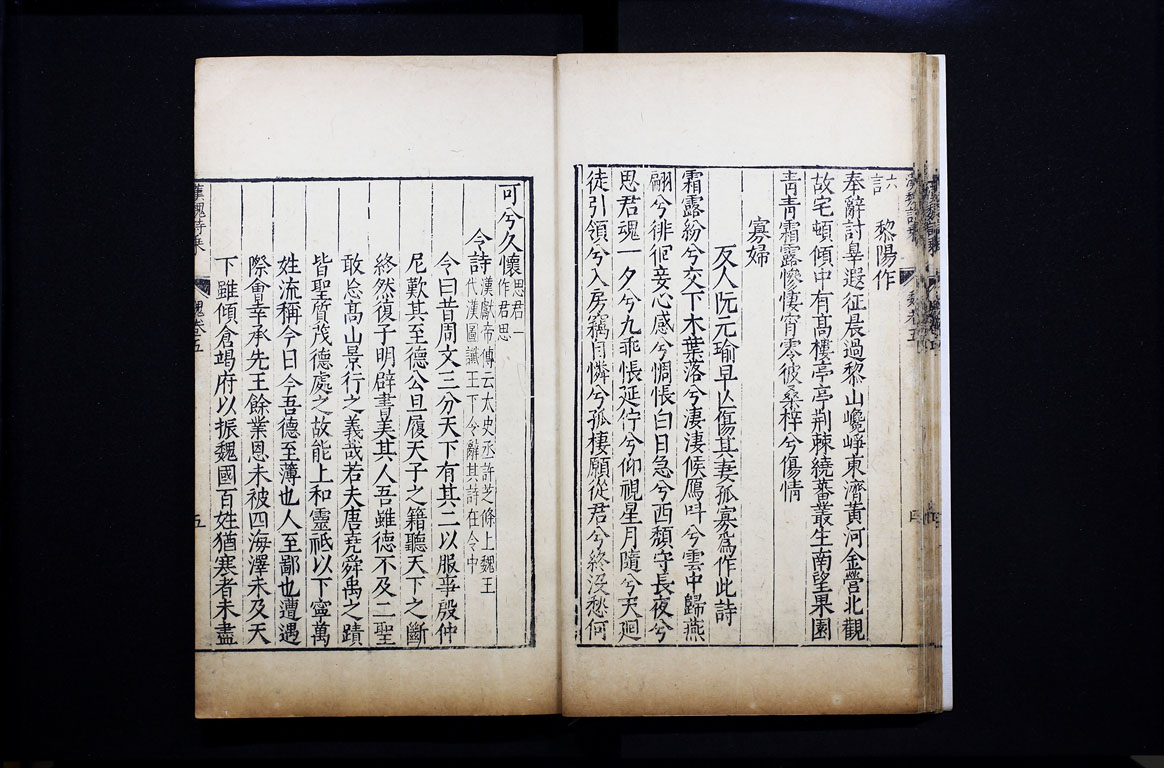 六言
黎陽作
奉辭討辠遐征晨過黎山巉崢東濟黃河金營北觀
故宅頓傾中有高樓亭亭荆棘繞蕃叢生南望果園
青青霜露慘悽宵零彼桑梓兮傷情
寡婦
友人阮元瑜早亾傷其妻孤寡為作此詩
霜露紛兮交下木葉落兮淒淒候鴈叫兮雲中歸燕
翩兮徘徊妾心感兮惆悵白日急兮西頹守長夜兮
思君魂一夕兮九乖悵延佇兮仰視星月隨兮天迴
徒引領兮入房竊自憐兮孤棲願從君兮終沒愁何
可兮久懷思君一作君思
令詩漢獻帝傳云太史丞許芝條上魏王代漢圖讖王下令辭其詩在令中
令曰昔周文三分天下有其二以服事殷仲
尼歎其至德公旦履天子之籍聽天下之斷
終然復子明辟書美其人吾雖德不及二聖
敢忘高山景行之義哉若夫唐堯舜禹之蹟
皆聖質茂德處之故能上和靈祇以下寧萬
姓流稱今日今吾德至薄也人至鄙也遭遇
際會幸承先王餘業恩未被四海澤未及天
下雖傾倉竭府以振魏國百姓猶寒者未盡
漢魏詩乘
魏卷五
五